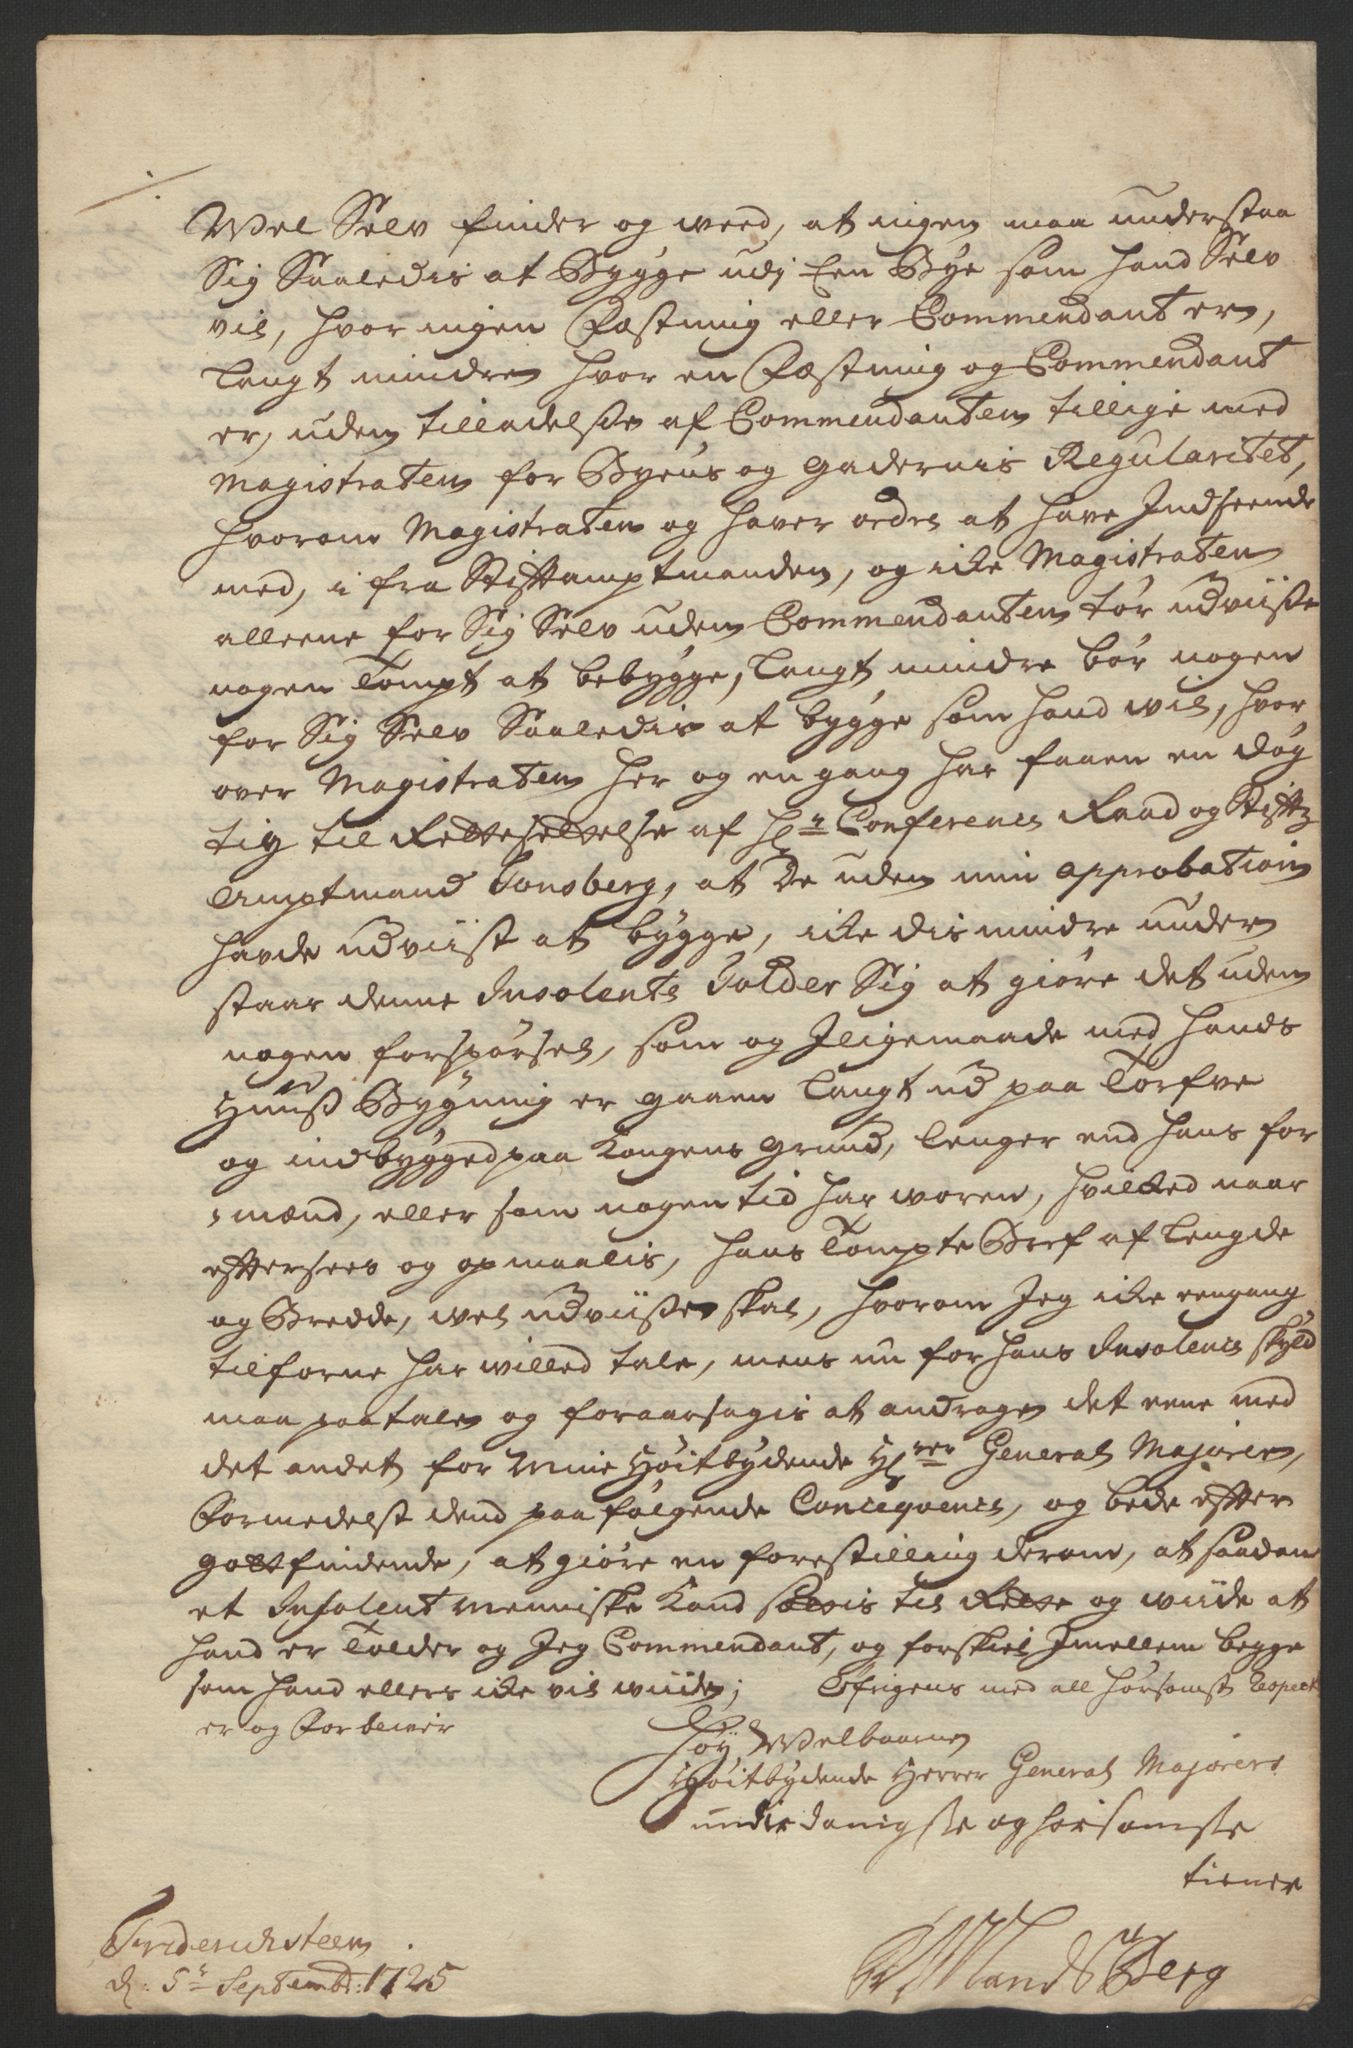 Wel Selv finder og weed, at ingen maa understaa
Sig Saaledis at Bygge udj Een Bye som hand Selv
vil, hvor ingen Fæstning eller Commendant er,
langt mindre hvor en Fæstning og Commendant
er, uden tilladelsse af Commendanten tillige med
Magistraten for Byens og gadernis Regularitet,
hvorom Magistraten og haver ordre at have Indseende
med, i fra Stiftamptmanden, og icke Magistraten
alleene for Sig Selv uden Commendanten tør udviisse
nogen Tompt at bebygge, langt mindre bør nogen
for Sig Selv Saaledis at bygge som hand wil, hvor
over Magistraten her og en gang har faaen en døg
tig til Rettesettelse af Hr Conference Raad og Stiftz
Amptmand Tonsberg, at De uden min approbation
havde udviist at bygge, icke dis mindre under
staar denne Insolente Tolder Sig at giøre det uden
nogen forspørsel, som og Jligemaade med hands
Huuss Bygning er gaaen langt ud paa Torfve
og indbygged paa Kongens grund, lenger end hans for
mænd, eller som nogen tid har woren, hvilked naar
efftersees og opmaalis, hans Tompte Bref af Lengde
og Bredde, wel udviisse skal, hvorom Jeg icke eengang
tilforne har willed tale, mens nu for hans Insolence skyld
maa paatale og foraarsagis at andrage det eene med
det andet for Mine Høitbydende Hrer General Majorer,
Formedelst dend paafølgende Conceqvence, og bede effter
gottfindende, at giøre en forestilling derom, at saadan
et Insolent Menniske Kand settis til Rette og wiide at
hand er Tolder og Jeg Commendant, og forskiel Jmellem begge
som hand ellers icke vil wiide; Øfrigens med all hørsomst Respect
er og Forbliver
Høy Welbaarne
Høitbydende Herrer General Majorers
underdanigste og hørsomste
tiener
Friderichsteen
d: 5r Septembr: 1725
LandsBerg